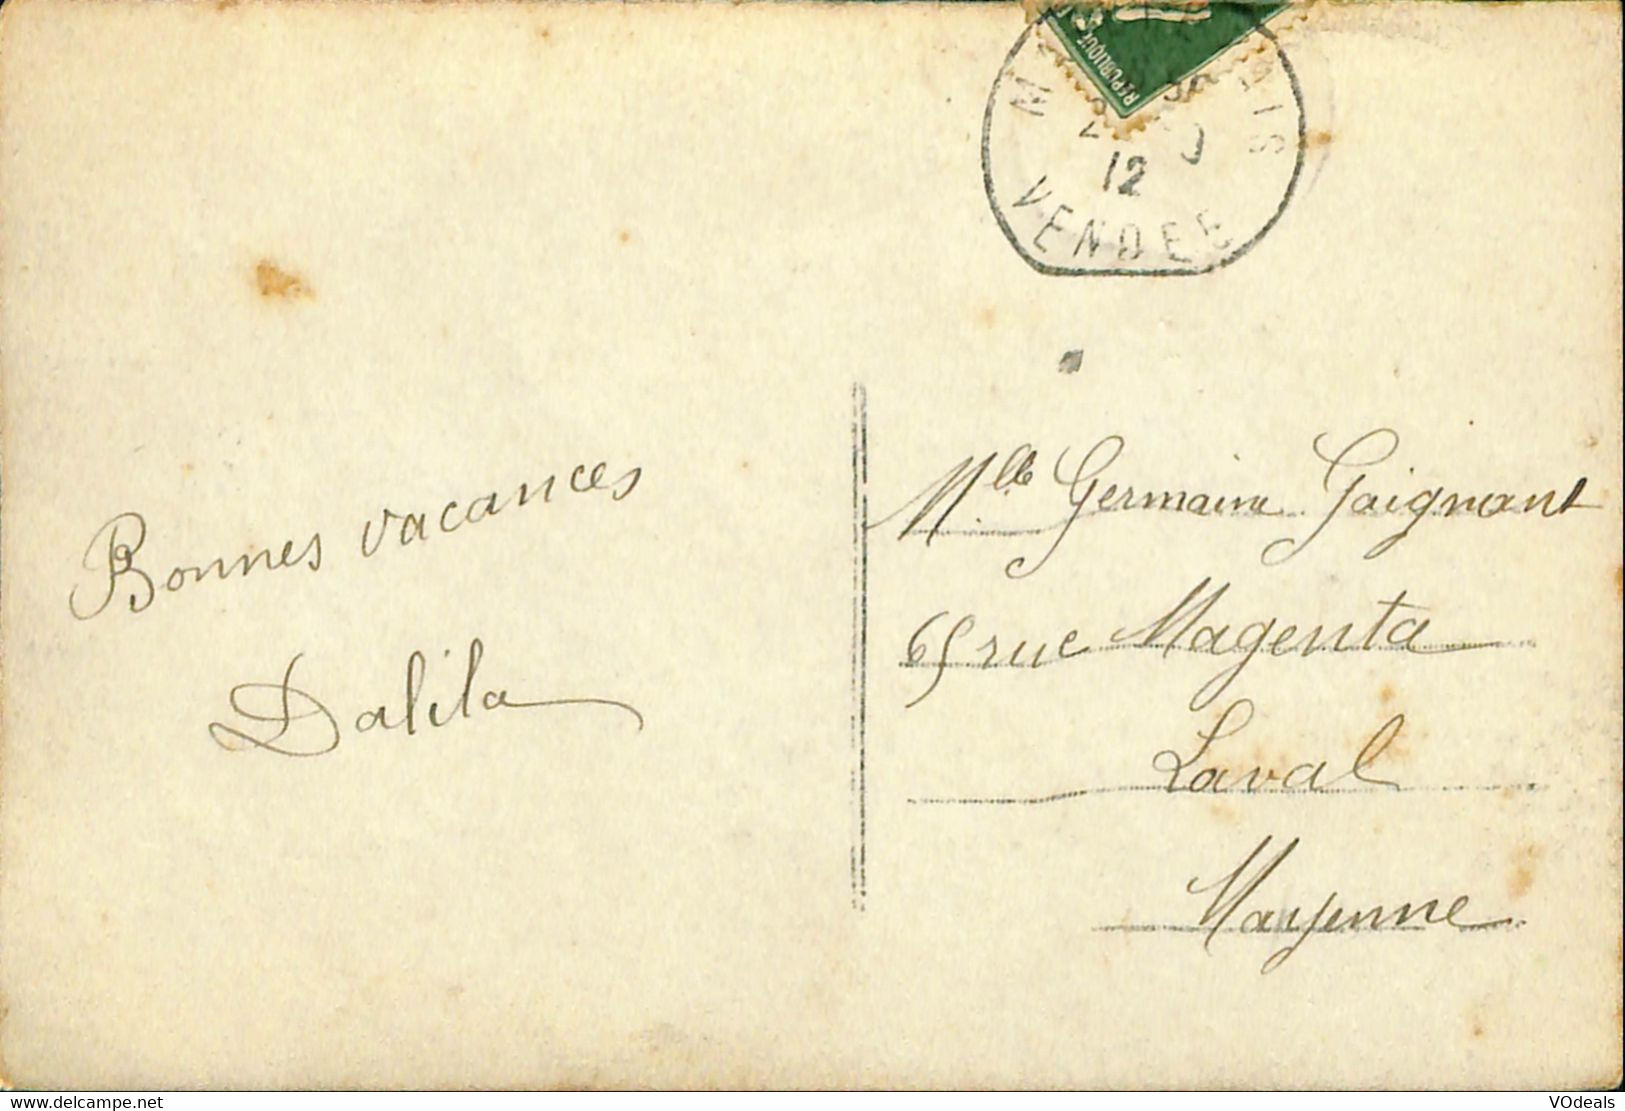 REPUBLIQUE
12
VENDEE
Bonnes vacances
Dalila
Mlle Germaine Gaignant
65 rue Magenta
Laval
Mayenne
www.delcampe.net
VOdeals